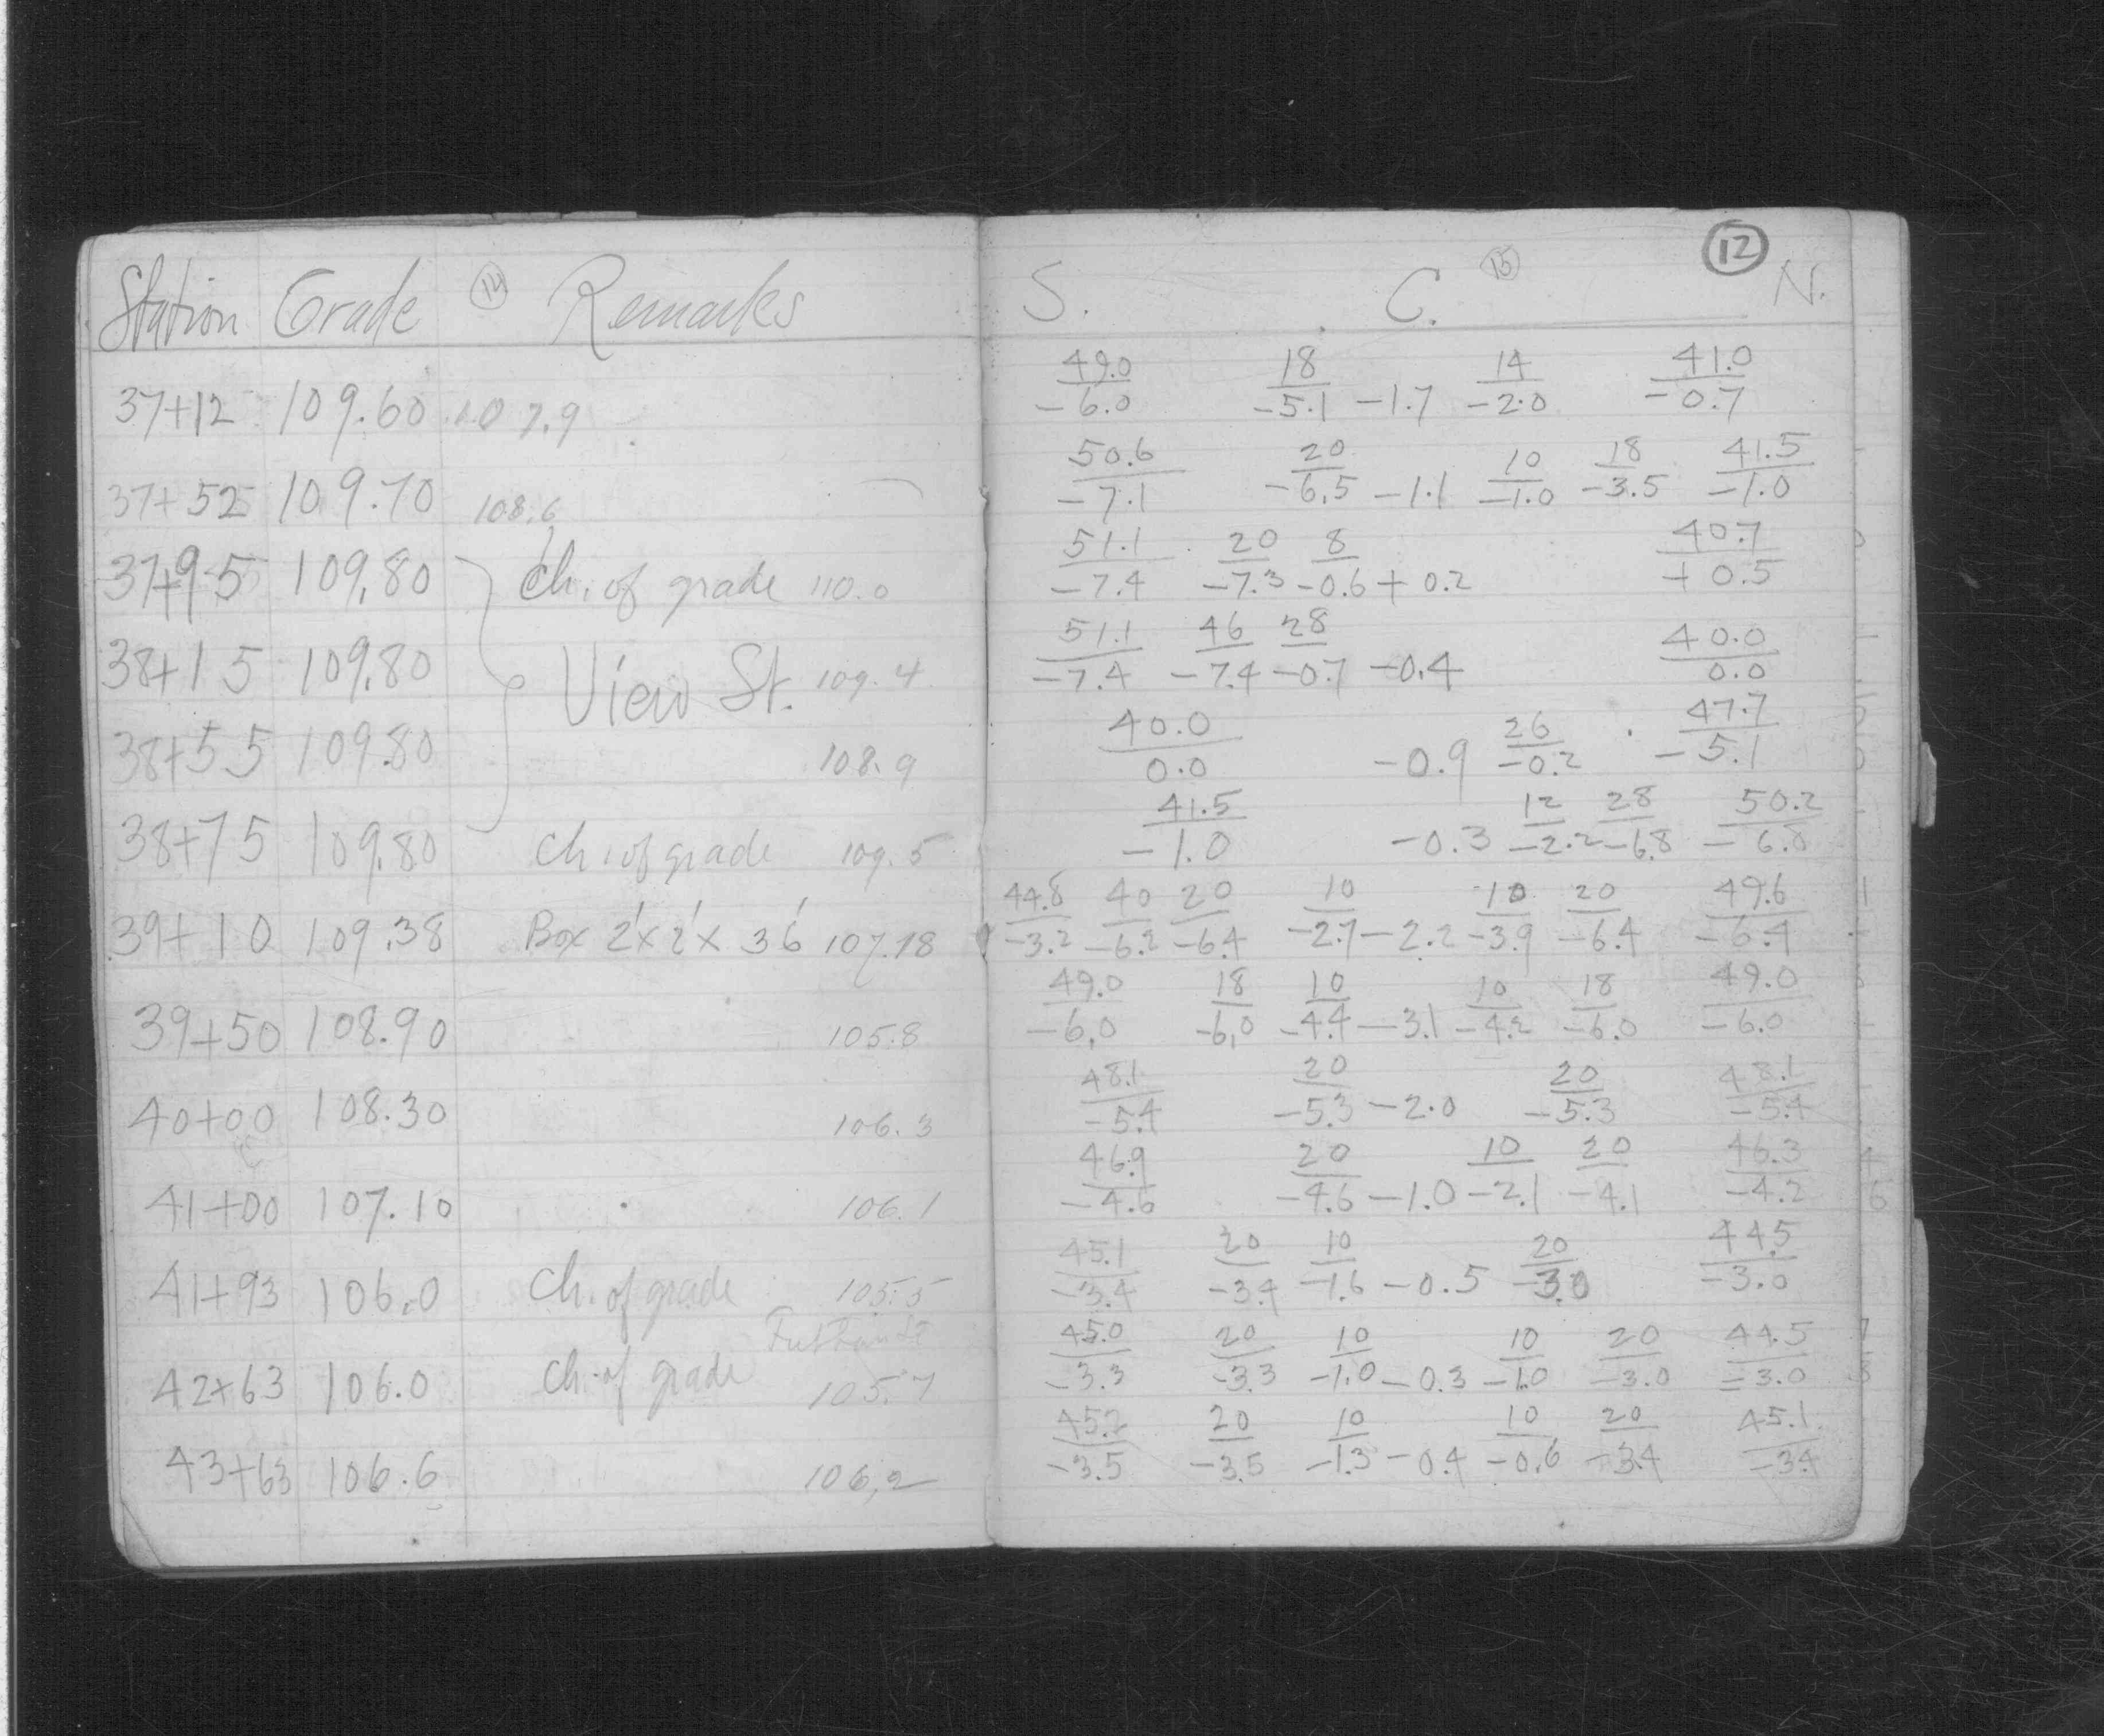 Station Grade (14) Remarks
37+12 109.60 107.9
37+52 109.70 108.6
37+95 109.80 Ch. of grade 110.0
38+15 109.80 View St. 109.4
38+55 109.80 108.9
38+75 109.80 Ch. of grade 109.5
39+10 109.38 Box 2'x2'x 36' 107.18
39+50 108.90 105.8
40+00 108.30 106.3
41+00 107.10 106.1
41+93 106.0 Ch. of grade 105.5
42+63 106.0 Ch. of grade 105.7
43+63 106.6 106.2
(12)
S. C. (15) N.
49.0 18 14 41.0
-6.0 -5.1 -1.7 -2.0 -0.7
50.6 20 10 18 41.5
-7.1 -6.5 -1.1 -1.0 -3.5 -1.0
51.1 20 8 40.7
-7.4 -7.3 -0.6 +0.2 +0.5
51.1 46 28 40.0
-7.4 -7.4 -0.7 -0.4 0.0
40.0 26 47.7
0.0 -0.9 -0.2 -5.1
41.5 12 28 50.2
-1.0 -0.3 -2.2 -6.8 -6.8
44.8 40 20 10 10 20 49.6
-3.2 -6.2 -6.4 -2.7 -2.2 -3.9 -6.4 -6.4
49.0 18 10 10 18 49.0
-6.0 -6.0 -4.4 -3.1 -4.2 -6.0 -6.0
48.1 20 20 48.1
-5.4 -5.3 -2.0 -5.3 -5.4
46.9 20 10 20 46.3
-4.6 -4.6 -1.0 -2.1 -4.1 -4.2
45.1 20 10 20 44.5
-3.4 -3.4 -1.6 -0.5 -3.0 -3.0
45.0 20 10 10 20 44.5
-3.3 -3.3 -1.0 -0.3 -1.0 -3.0 -3.0
45.2 20 10 10 20 45.1
-3.5 -3.5 -1.3 -0.4 -0.6 -3.4 -3.4